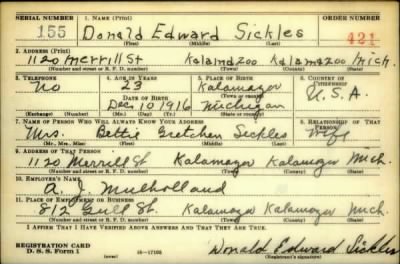 SERIAL NUMBER 1. NAME (Print) ORDER NUMBER
155 Donald Edward Sickles 421
(First) (Middle) (Last)
2. ADDRESS (Print)
1120 Merrill St Kalamazoo Kalamazoo Mich.
(Number and street or R. F. D. number) (Town) (County) (State)
3. TELEPHONE 4. AGE IN YEARS 5. PLACE OF BIRTH 6. COUNTRY OF CITIZENSHIP
No 23 Kalamazoo U.S.A.
DATE OF BIRTH (Town or county)
Dec 10 1916 Michigan
(Exchange) (Number) (Mo.) (Day) (Yr.) (State or country)
7. NAME OF PERSON WHO WILL ALWAYS KNOW YOUR ADDRESS 8. RELATIONSHIP OF THAT PERSON
Mrs. Bettie Gretchen Sickles Wife
(Mr., Mrs., Miss) (First) (Middle) (Last)
9. ADDRESS OF THAT PERSON
1120 Merrill St. Kalamazoo Kalamazoo Mich.
(Number and street or R. F. D. number) (Town) (County) (State)
10. EMPLOYER'S NAME
A. J. Mulholland
11. PLACE OF EMPLOYMENT OR BUSINESS
812 Gull St. Kalamazoo Kalamazoo Mich.
(Number and street or R. F. D. number) (Town) (County) (State)
I AFFIRM THAT I HAVE VERIFIED ABOVE ANSWERS AND THAT THEY ARE TRUE.
REGISTRATION CARD
D. S. S. Form 1 (over) 16-17105 Donald Edward Sickles
(Registrant's signature)